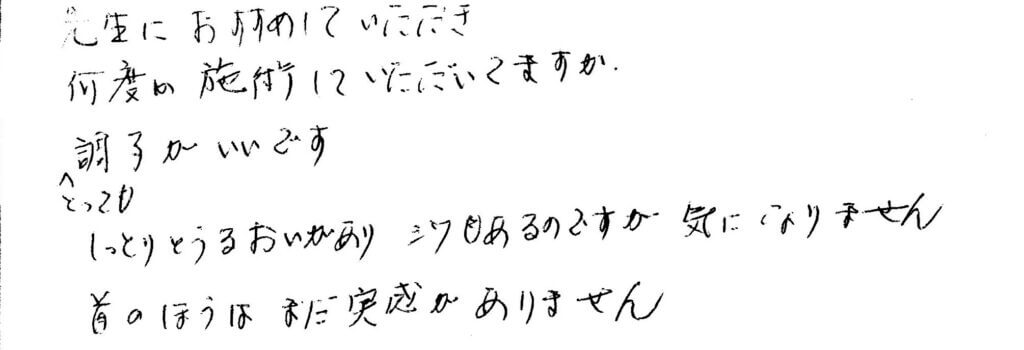 先生におすすめしていただき
何度か施術していただいてますが、
調子がいいです
とっても
しっとりとうるおいがあり シワもあるのですが 気になりません
首のほうは まだ実感がありません